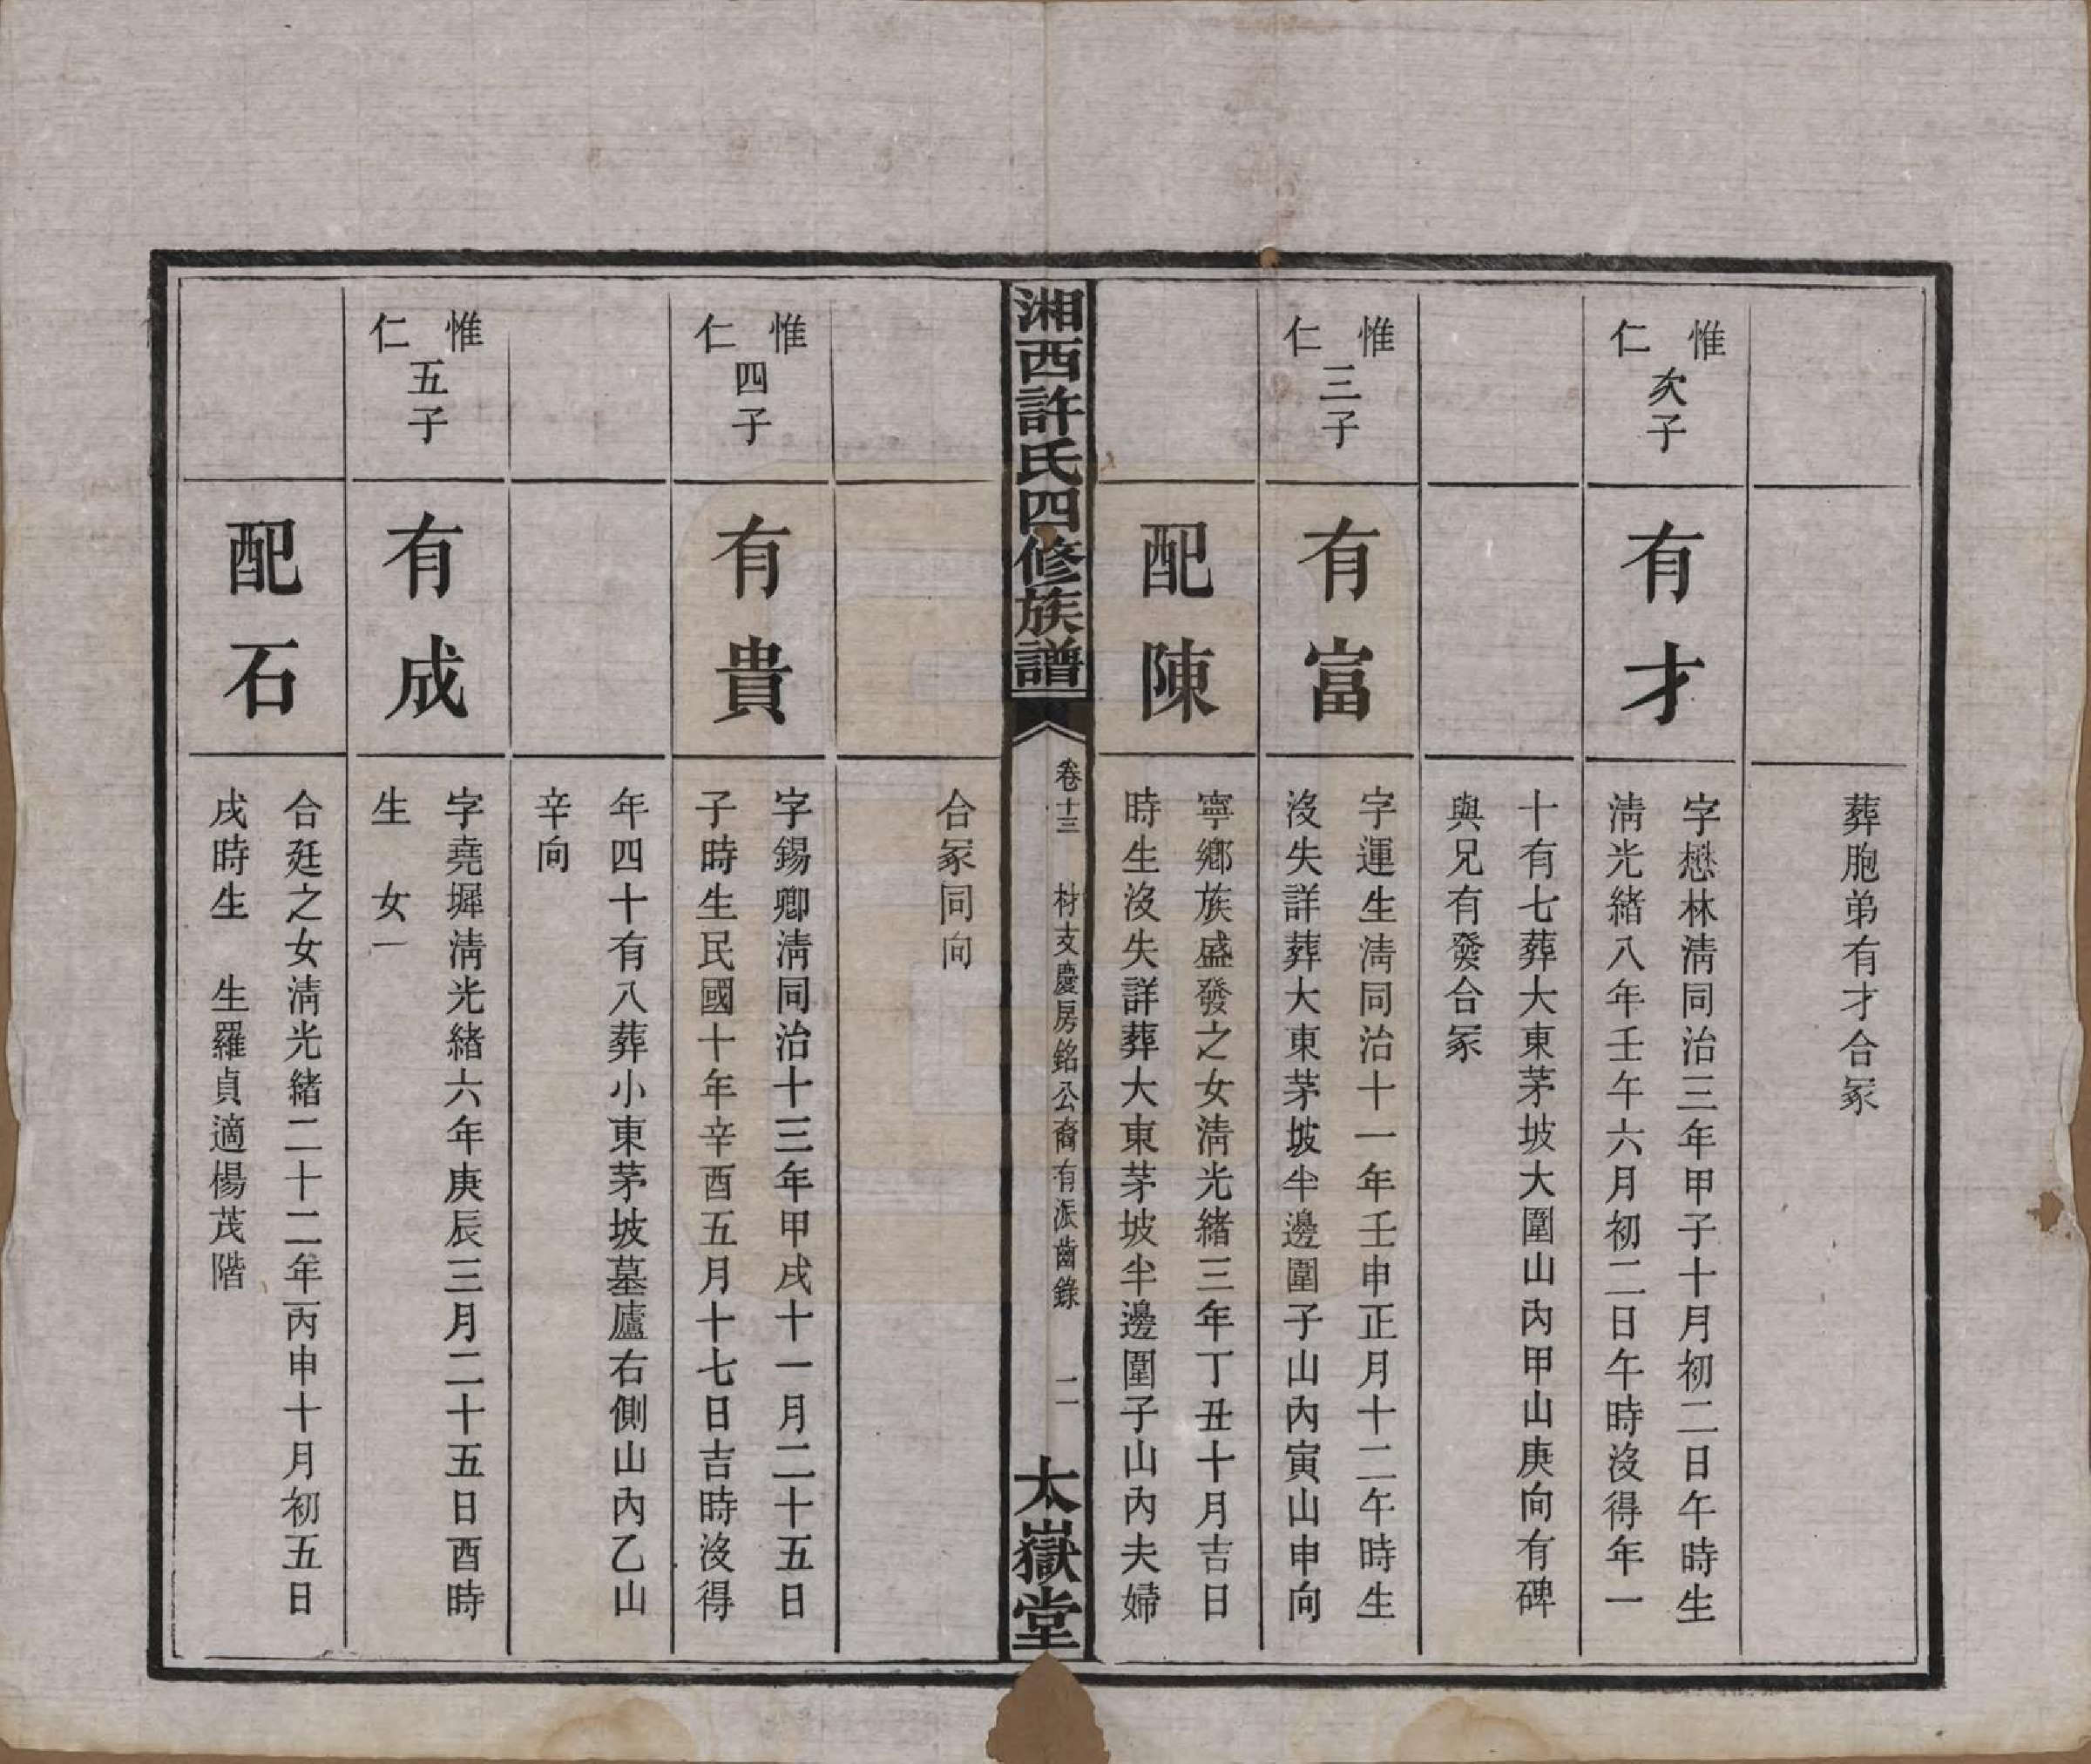 葬胞弟有才合冢
惟仁次子
有才
字懋林淸同治三年甲子十月初二日午時生
淸光緒八年壬午六月初二日午時沒得年一
十有七葬大東茅坡大圍山內甲山庚向有碑
與兄有發合冢
惟仁三子
有富
字運生淸同治十一年壬申正月十二午時生
沒失詳葬大東茅坡半邊圍子山內寅山申向
配陳
寧鄉族盛發之女淸光緒三年丁丑十月吉日
時生沒失詳葬大東茅坡半邊圍子山內夫婦
湘西許氏四修族譜
卷十三
材支慶房銘公裔有派齒錄
二
太嶽堂
合冢同向
惟仁四子
有貴
字錫卿淸同治十三年甲戌十一月二十五日
子時生民國十年辛酉五月十七日吉時沒得
年四十有八葬小東茅坡墓廬右側山內乙山
辛向
惟仁五子
有成
字堯墀淸光緒六年庚辰三月二十五日酉時
生 女一
配石
合廷之女淸光緒二十二年丙申十月初五日
戌時生 生羅貞適楊茂階